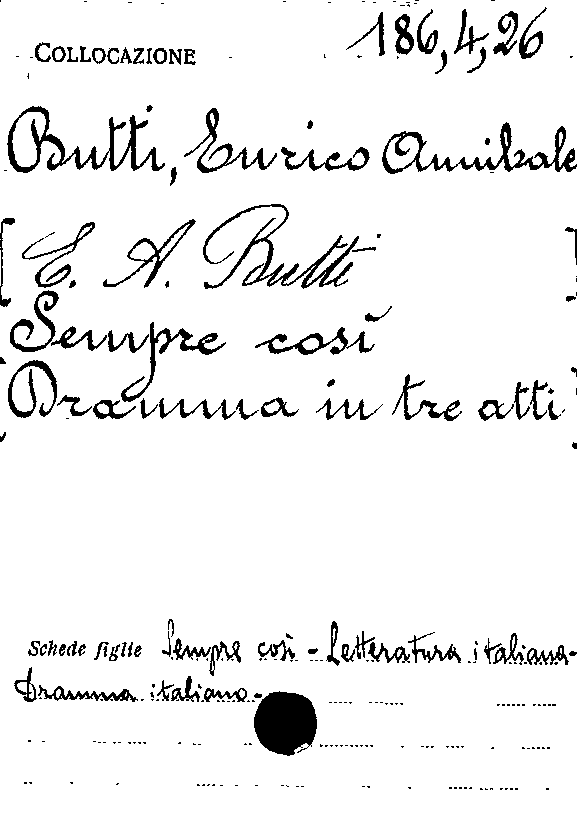 COLLOCAZIONE 186,4,26
Butti, Enrico Annibale
[E. A. Butti]
Sempre così
[Dramma in tre atti]
Schede figlie Sempre così - Letteratura italiana -
Dramma italiano -